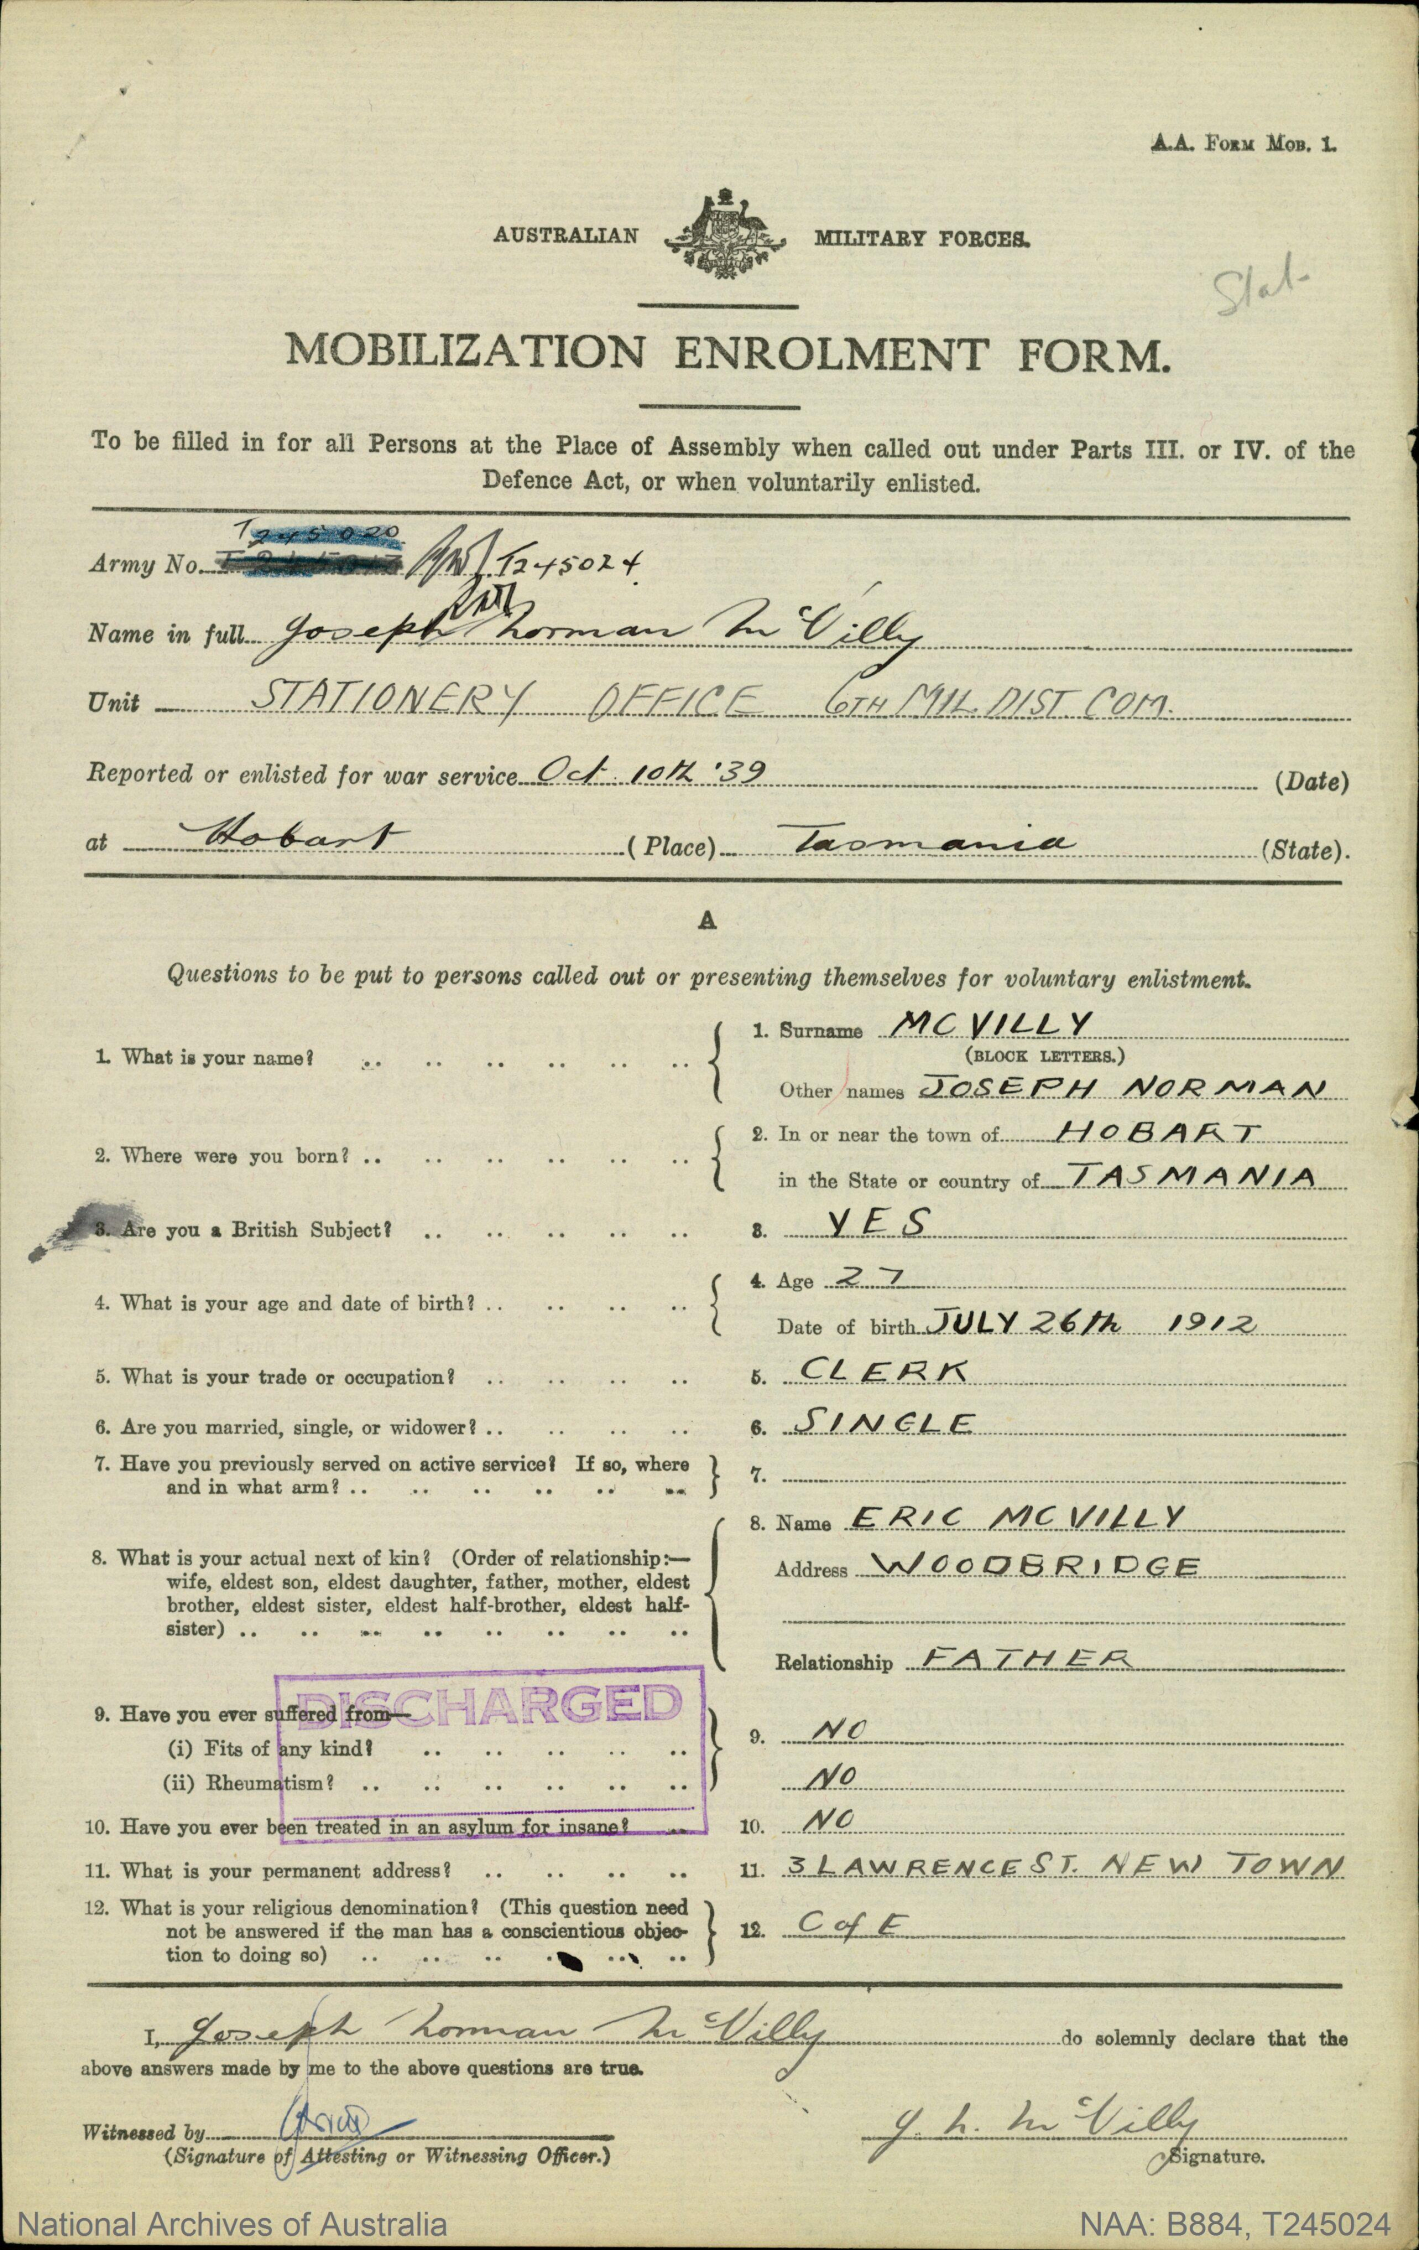 A.A. FORM MOB. 1.
AUSTRALIAN MILITARY FORCES.
Stat
MOBILIZATION ENROLMENT FORM.
To be filled in for all Persons at the Place of Assembly when called out under Parts III. or IV. of the
Defence Act, or when voluntarily enlisted.
T245020
Army No. T245024.
Name in full Joseph Norman McVilly
Unit STATIONERY OFFICE 6TH MIL. DIST. COM.
Reported or enlisted for war service Oct 10th '39 (Date)
at Hobart (Place) Tasmania (State).
A
Questions to be put to persons called out or presenting themselves for voluntary enlistment.
1. What is your name? .. .. .. .. .. .. 1. Surname MCVILLY
(BLOCK LETTERS.)
Other names JOSEPH NORMAN
2. Where were you born? .. .. .. .. .. .. 2. In or near the town of HOBART
in the State or country of TASMANIA
3. Are you a British Subject? .. .. .. .. .. 3. YES
4. What is your age and date of birth? .. .. .. .. 4. Age 27
Date of birth JULY 26th 1912
5. What is your trade or occupation? .. .. .. .. 5. CLERK
6. Are you married, single, or widower? .. .. .. .. 6. SINGLE
7. Have you previously served on active service? If so, where
and in what arm? .. .. .. .. .. .. 7.
8. What is your actual next of kin? (Order of relationship:—
wife, eldest son, eldest daughter, father, mother, eldest
brother, eldest sister, eldest half-brother, eldest half-
sister) .. .. .. .. .. .. .. ..
8. Name ERIC MCVILLY
Address WOODBRIDGE
Relationship FATHER
DISCHARGED
9. Have you ever suffered from—
(i) Fits of any kind? .. .. .. .. .. 9. NO
(ii) Rheumatism? .. .. .. .. .. .. NO
10. Have you ever been treated in an asylum for insane? .. 10. NO
11. What is your permanent address? .. .. .. .. 11. 3 LAWRENCE ST. NEW TOWN
12. What is your religious denomination? (This question need
not be answered if the man has a conscientious objec-
tion to doing so) .. .. .. .. .. .. 12. C of E
I, Joseph Norman McVilly do solemnly declare that the
above answers made by me to the above questions are true.
Witnessed by
(Signature of Attesting or Witnessing Officer.)
J. N. McVilly
Signature.
National Archives of Australia
NAA: B884, T245024